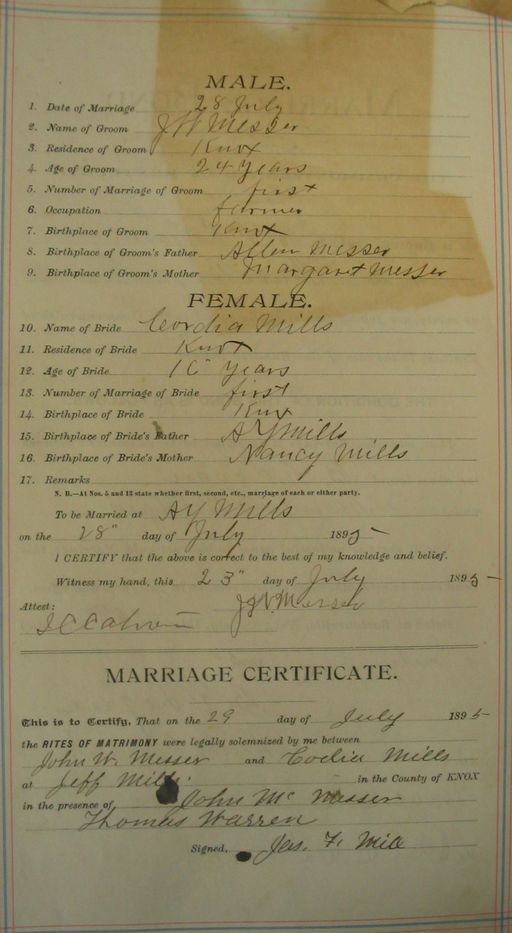 MALE.
1. Date of Marriage 28 July
2. Name of Groom J W Messer
3. Residence of Groom Knox
4. Age of Groom 24 years
5. Number of Marriage of Groom first
6. Occupation farmer
7. Birthplace of Groom Knox
8. Birthplace of Groom's Father Allen Messer
9. Birthplace of Groom's Mother Margaret Messer
FEMALE.
10. Name of Bride Cordia Mills
11. Residence of Bride Knox
12. Age of Bride years
13. Number of Marriage of Bride first
14. Birthplace of Bride Knox
15. Birthplace of Bride's Father A Y Mills
16. Birthplace of Bride's Mother Nancy Mills
17. Remarks
N. B.—At Nos. 5 and 13 state whether first, second, etc., marriage of each or either party.
To be Married at A Y Mills
on the 28" day of July 1895
I CERTIFY that the above is correct to the best of my knowledge and belief.
Witness my hand, this 23" day of July 1895
Attest: J W Messer
MARRIAGE CERTIFICATE.
This is to Certify, That on the 29 day of July 1895
the RITES OF MATRIMONY were legally solemnized by me between
John W. Messer and Codia Mills
at Jeff Mills. in the County of KNOX
in the presence of John Mc Messer
Thomas Warren
Signed, Jas. F. Mill